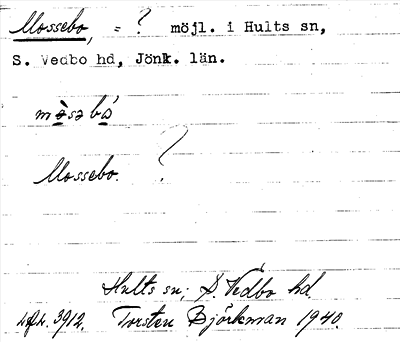 Mossebo, = ? möjl. i Hults sn,
S. Vedbo hd, Jönk. län.
mòsə bó
Mossebo. ?
Hults sn; S. Vedbo hd.
3912. Torsten Björkman 1940.